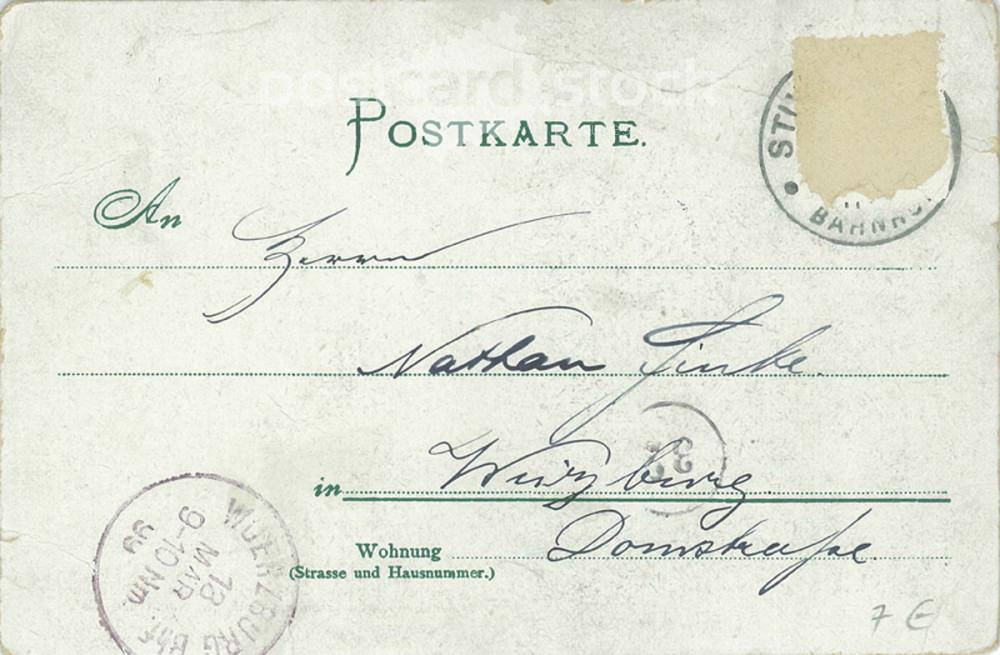 postcard.stock
POSTKARTE.
STU
BAHNHO
An
Herrn
Nathan Finke.
in Würzburg.
Domstraße.
Wohnung
(Strasse und Hausnummer.)
WUERZBURG Bhf.
13 MAR
9-10 Nm.
99
7 €